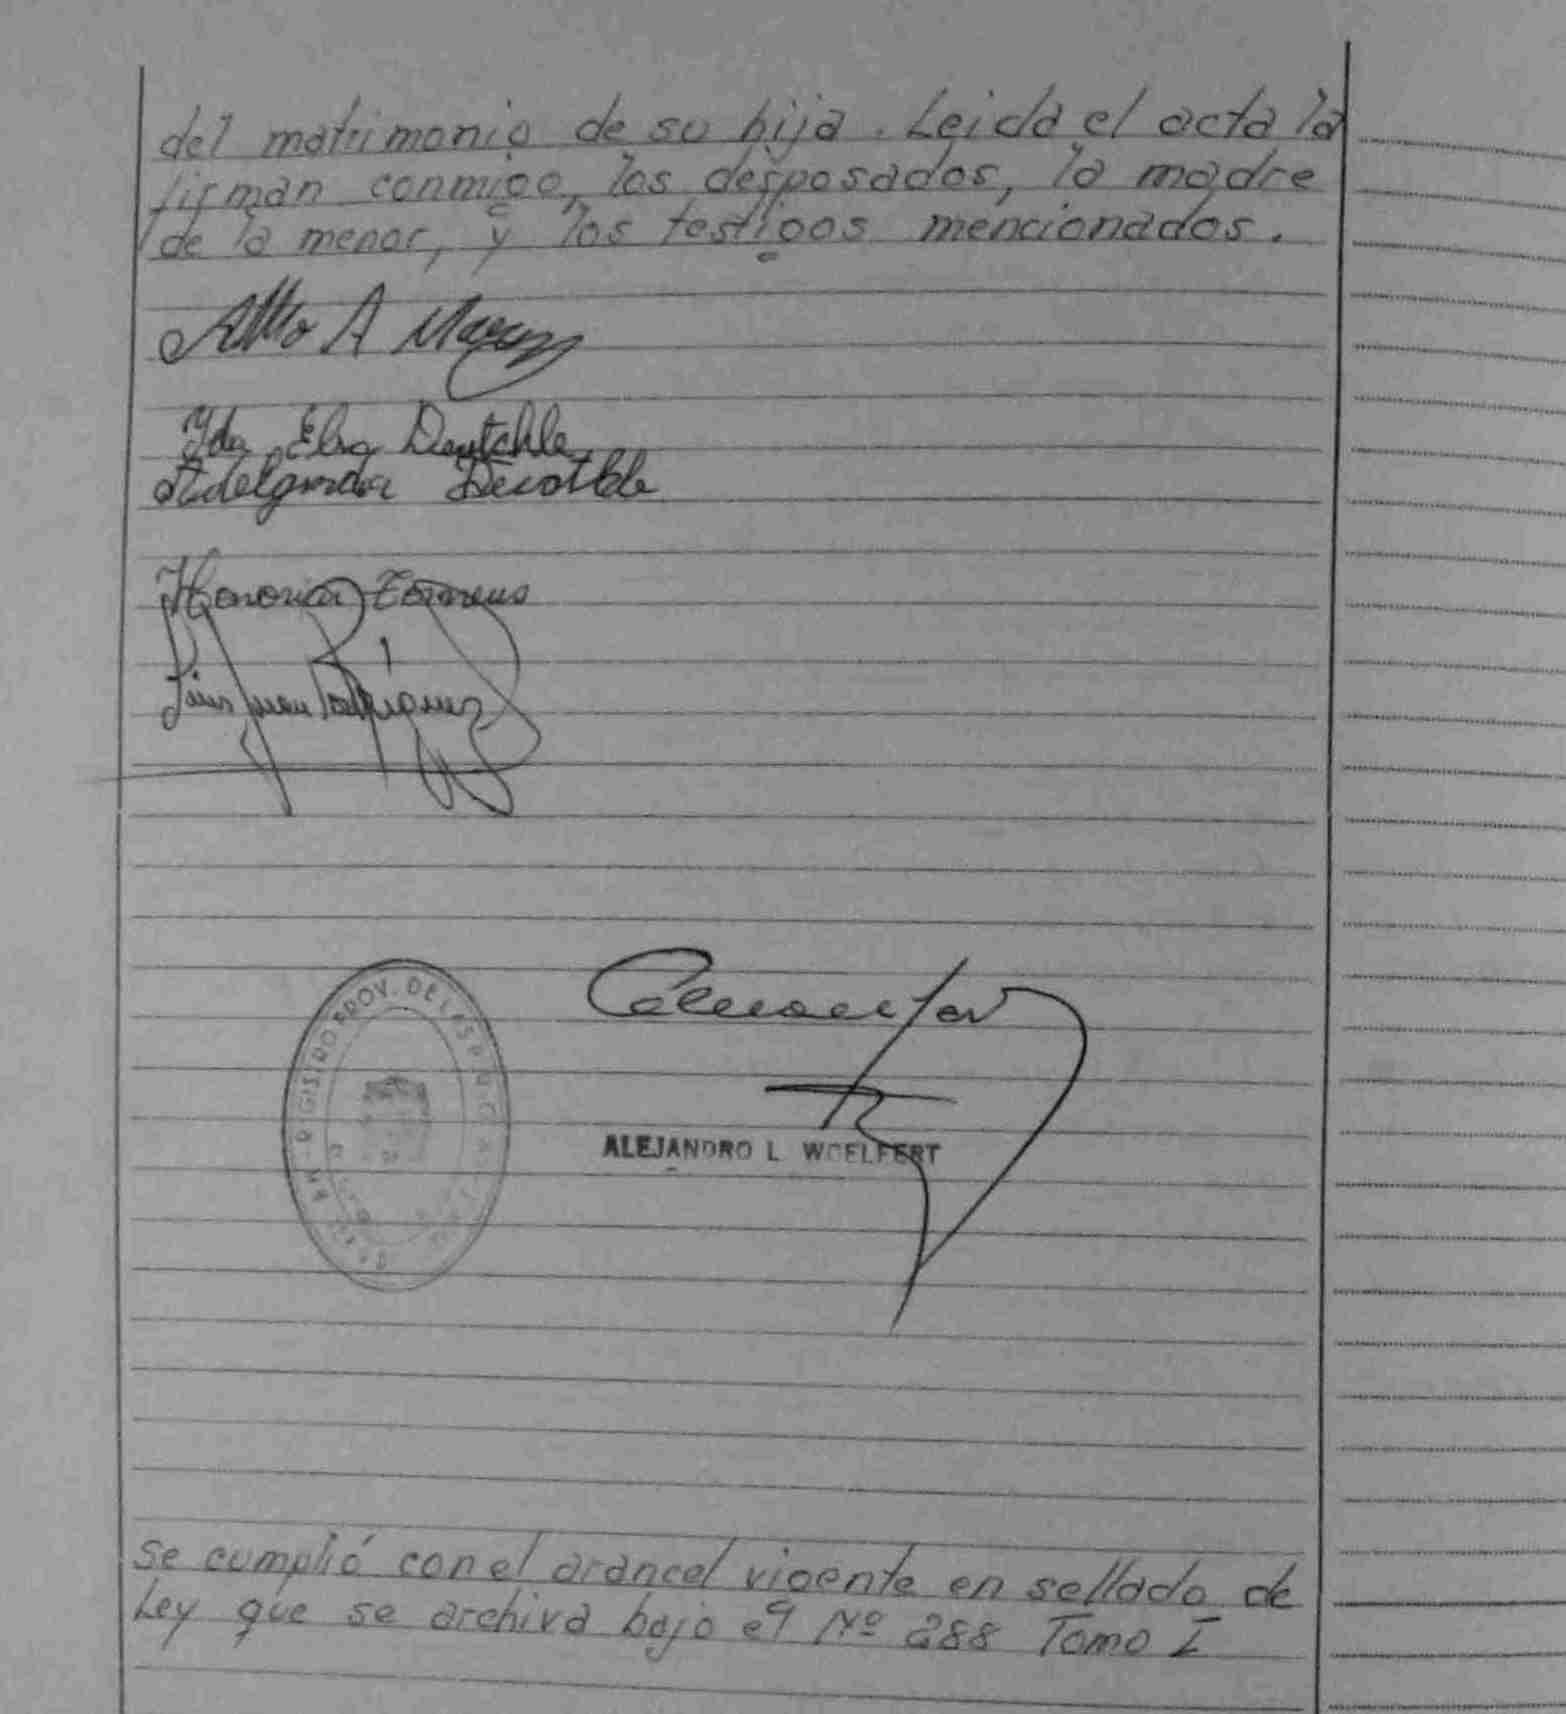 del matrimonio de su hija. Leida el acta la
firman conmigo, los desposados, la madre
de la menor, y los testigos mencionados.
A
Yda Elsa Deutchle
Luis Juan Rodríguez
GISTRO PROV. DE LAS P
ALEJANDRO L WOELFERT
Se cumplió con el arancel vigente en sellado de
Ley que se archiva bajo el Nº 288 Tomo I